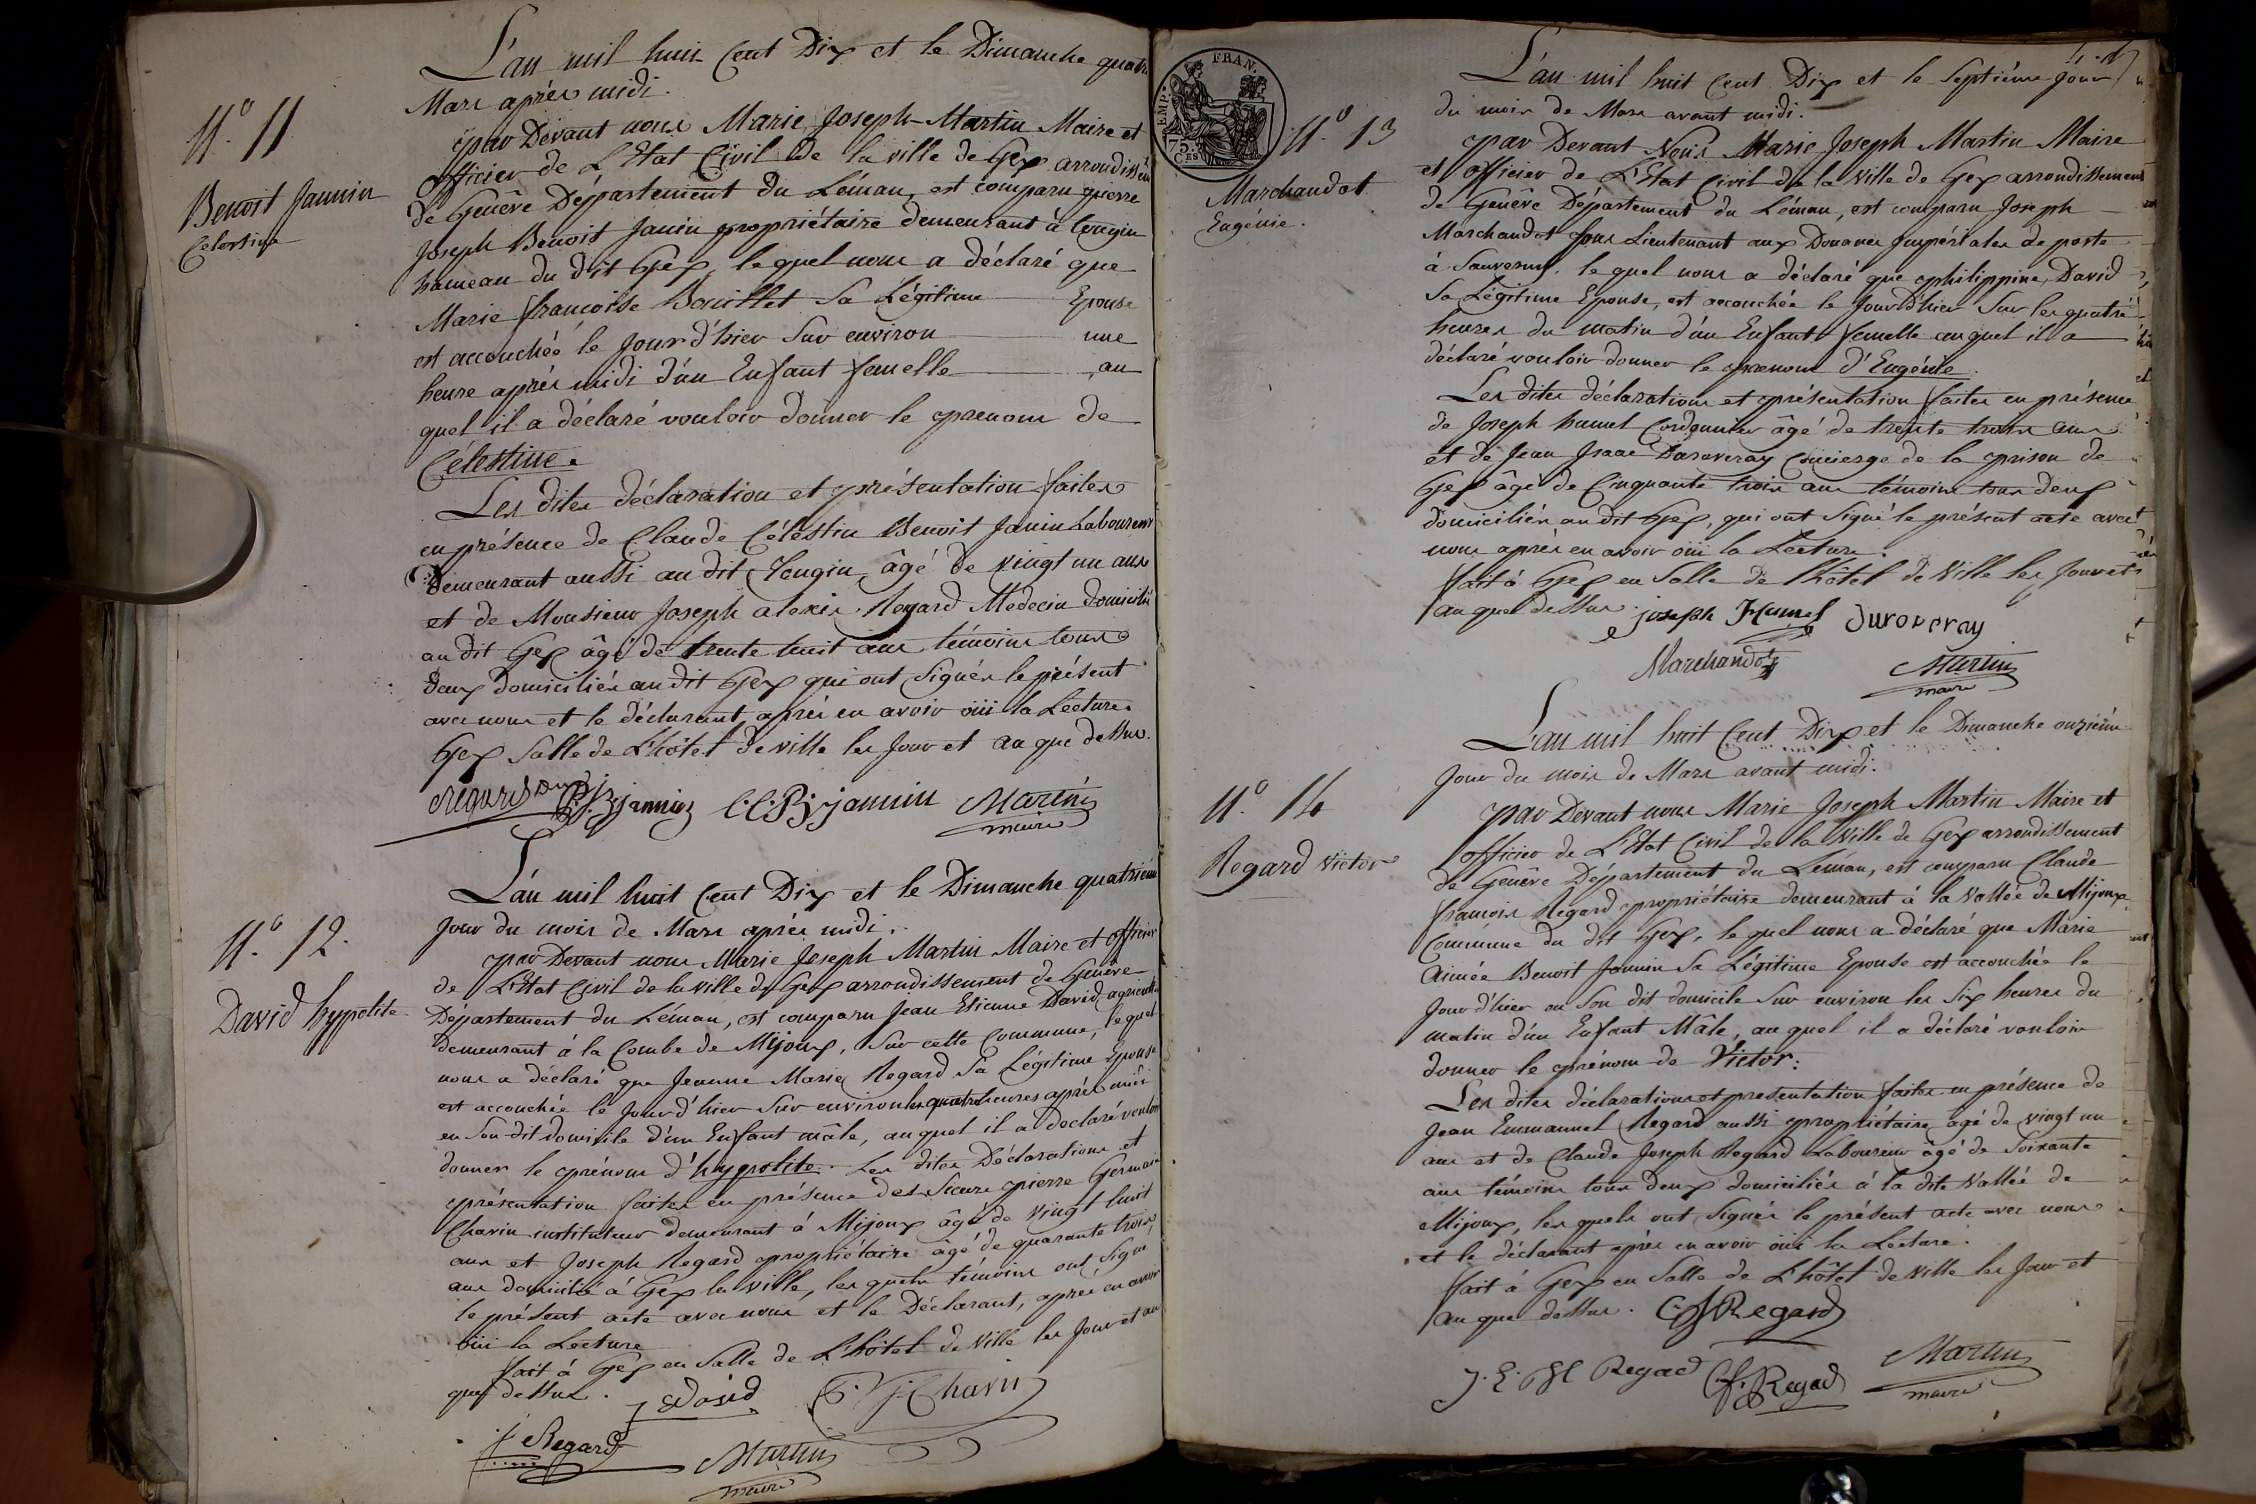 L'an mil huit Cent Dix et le Dimanche quatre
Mars après midi.
N.° 11
par Devant nous Marie Joseph Martin Maire et
officier de L'Etat Civil de la ville de Gex arrondissem
Benoit Jannin
Celestine
de Genêve Département du Léman, est comparu pierre
Joseph Benoit Janin propriétaire demeurant à tougin
hameau du dit Gex, le quel nous a déclaré que
Marie françoise Bouillet Sa Légitime Epouse
est accouchée le Jour d'hier Sur environ une
heure après midi d'un Enfant femelle au
quel il a déclaré vouloir donner le prenom de
Célestine.
Les dites déclaration et présentation faites
en présence de Claude Célestin Benoit Janin Laboureur
demeurant aussi au dit Tougin, âgé de vingt un ans
et de Monsieur Joseph alexis Regard Médecin domicilié
au dit Gex âgé de trente huit ans témoins tous
deux domiciliés au dit Gex qui ont Signés le présent
avec nous et le déclarant après en avoir oüi la Lecture
Gex Salle de L'hôtel de ville les Jour et an que dessus.
Regard P.J.Bjannin C.C.B.jannin Martin
maire
L'an mil huit Cent Dix et le Dimanche quatrième
Jour du mois de Mars après midi.
N.° 12.
par Devant nous Marie Joseph Martin Maire et officier
de L'Etat Civil de la ville de Gex arrondissement de Genêve
David hypolite.
Département du Léman, est comparu Jean Etienne David,
demeurant à la Combe de Mijoux, Sur cette Commune, le quel
nous a déclaré que Jeanne Marie Regard Sa Légitime Epouse
est accouchée le Jour d'hier Sur environ les quatre heures après midi
en Son dit domicile d'un Enfant mâle, au quel il a déclaré vouloir
donner le prénom d'hypolite. Les dites Déclarations et
présentation faites en présence des Sieurs pierre Germain
Chavin instituteur demeurant à Mijoux âgé de vingt huit
ans et Joseph Regard propriétaire âgé de quarante trois
ans domicilié à Gex la ville, les quels témoins ont Signé
le présent acte avec nous et le Déclarant, après en avoir
oüi la Lecture
fait à Gex en Salle de L'hôtel de Ville les Jour et an
que dessus. J E David P. G. Chavin
J Regard Martin
maire
FRAN.
EMP.
75.
CES
L'an mil huit Cent Dix et le Septième Jour
du mois de Mars avant midi.
N.° 13
par Devant Nous Marie Joseph Martin Maire
et officier de L'Etat Civil de la Ville de Gex arrondissement
Marchandot
Eugénie.
de Genêve Département du Léman, est comparu Joseph
Marchandot Sous Lieutenant aux Douanes Impériales de poste
à Sauverny. le quel nous a déclaré que philippine David
Sa Légitime Epouse, est accouchée le Jour d'hier Sur les quatre
heures du matin d'un Enfant femelle au quel il a
déclaré vouloir donner le prenom d'Eugénie.
Les dites déclarations et présentation faites en présence
de Joseph humel Cordonnier âgé de trente trois ans
et de Jean Isaac Duroveray Concierge de la prison de
Gex âgé de Cinquante trois ans témoins tous deux
domiciliés au dit Gex, qui ont Signé le présent acte avec
nous après en avoir oüi la Lecture.
fait à Gex en Salle de l'hôtel de Ville les Jour et
an que dessus. joseph Humel Duroveray
Marchandot Martin
maire
L'an mil huit Cent Dix et le Dimanche onzième
Jour du mois de Mars avant midi.
N.° 14
par Devant nous Marie Joseph Martin Maire et
officier de L'Etat Civil de la Ville de Gex arrondissement
Regard Victor
de Genêve Département du Léman, est comparu Claude
françois Regard propriétaire demeurant à la Vallée de Mijoux
Commune du dit Gex, le quel nous a déclaré que Marie
Aimée Benoit Jannin Sa Légitime Epouse est accouchée le
Jour d'hier en Son dit domicile Sur environ les Six heures du
matin d'un Enfant Mâle, au quel il a déclaré vouloir
donner le prénom de Victor:
Les dites déclarations et présentation faites en présence de
Jean Emmanuel Regard aussi propriétaire âgé de vingt un
ans et de Claude Joseph Regard Laboureur âgé de Soixante
ans témoins tous deux domiciliés à la dite Vallée de
Mijoux, les quels ont Signés le présent acte avec nous
et le déclarant après en avoir oüi la Lecture.
fait à Gex en Salle de L'hôtel de Ville les Jour et
an que dessus. C f Regard
J. E. Regad C J. Regad Martin
maire